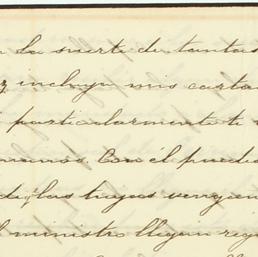 la suerte de tantas
z incluyo mis carta
particularmente ti
manos. Con él puedo
di, las trajas vengan
l ministro llegan reg